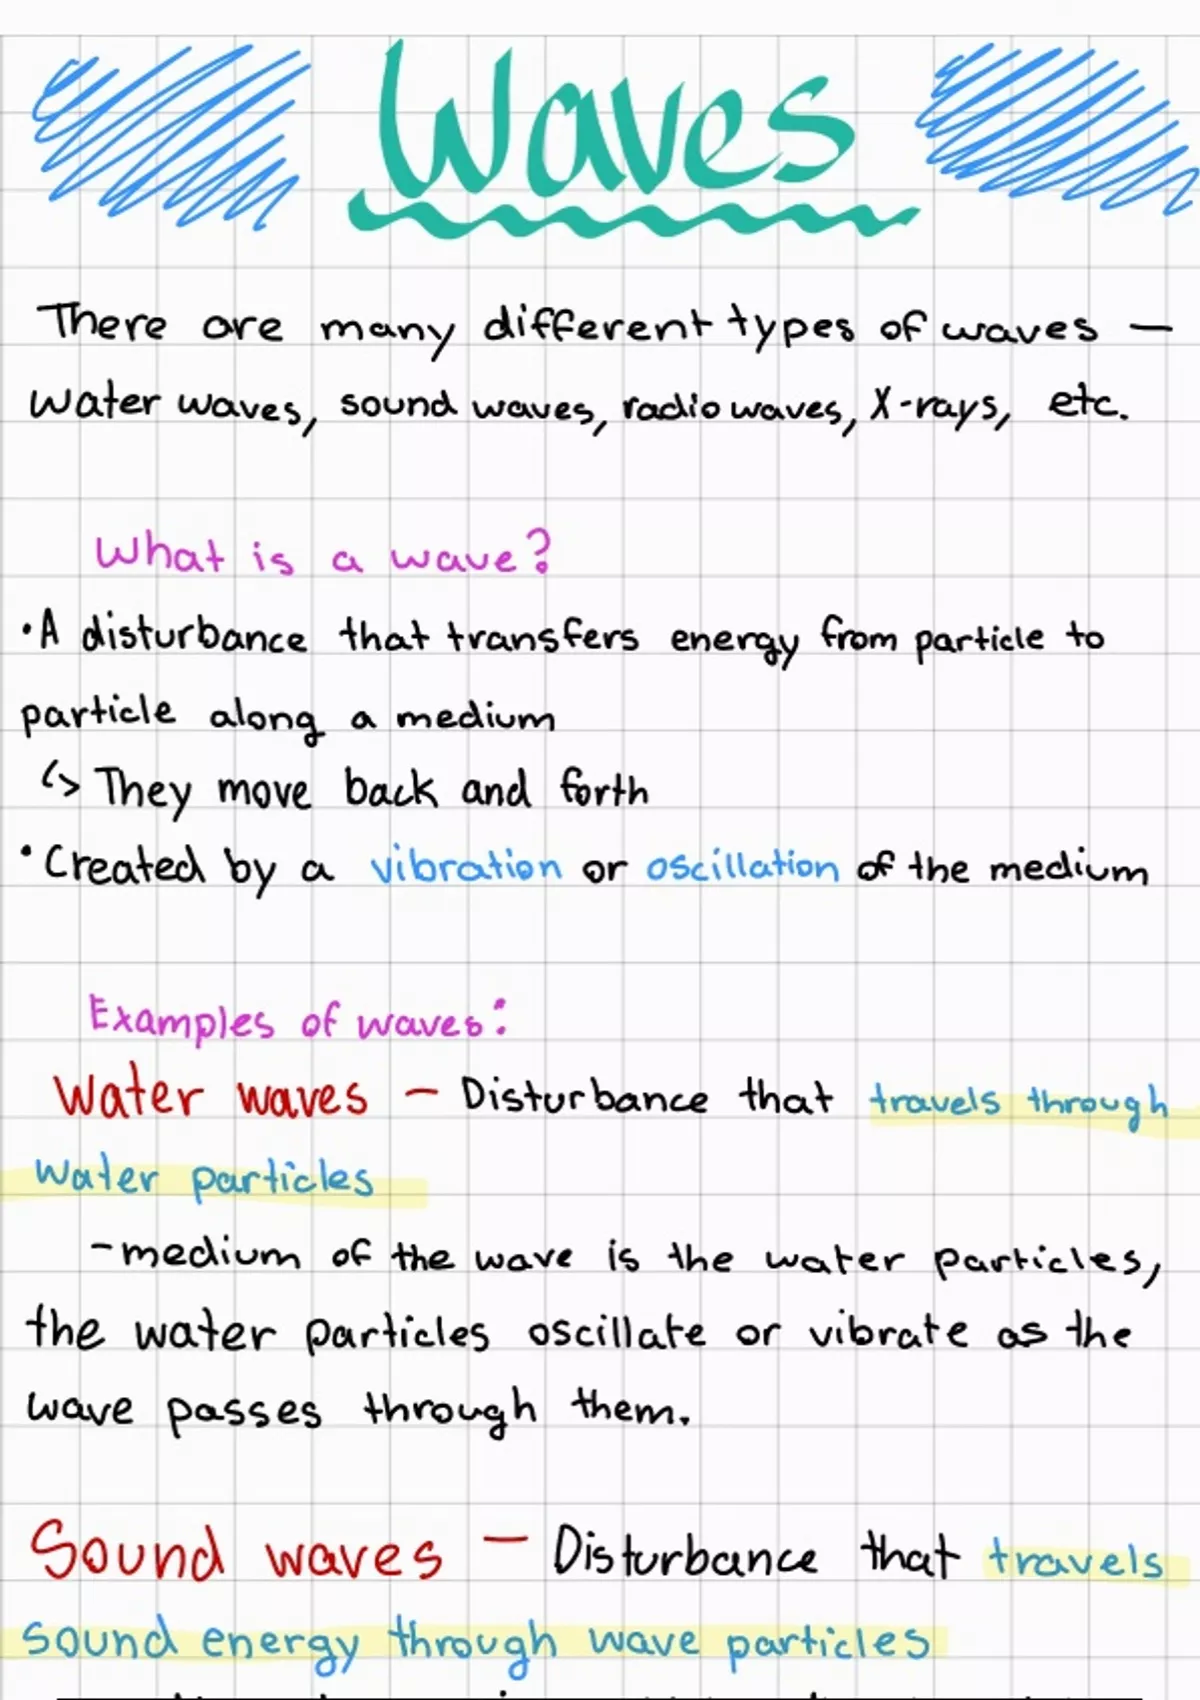 Waves
There are many different types of waves –
water waves, sound waves, radio waves, X-rays, etc.
What is a wave?
•A disturbance that transfers energy from particle to
particle along a medium
↳ They move back and forth
•Created by a vibration or oscillation of the medium
Examples of waves:
Water waves – Disturbance that travels through
water particles
-medium of the wave is the water particles,
the water particles oscillate or vibrate as the
wave passes through them.
Sound waves – Disturbance that travels
sound energy through wave particles